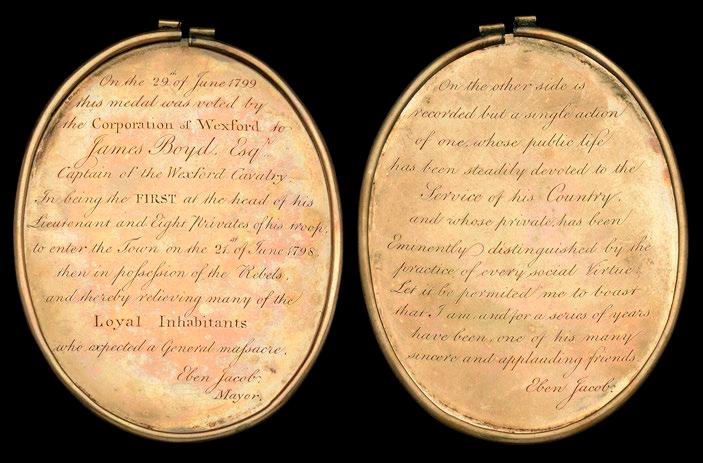 On the 29th of June 1799
this medal was voted by
the Corporation of Wexford to
James Boyd, Esqr.
Captain of the Wexford Cavalry
In being the FIRST at the head of his
Lieutenant and Eight Privates of his troop,
to enter the Town on the 21st of June 1798,
then in poſseſsion of the Rebels,
and thereby relieving many of the
Loyal Inhabitants
who expected a General maſsacre.
Eben Jacob:
Mayor.
On the other side is
recorded but a single action
of one, whose public life
has been steadily devoted to the
Service of his Country,
and whose private, has been
Eminently distinguished by the
practice of every social Virtue;
Let it be permited me to boast
that I am, and for a series of years
have been, one of his many
sincere and applauding friends
Eben Jacob: